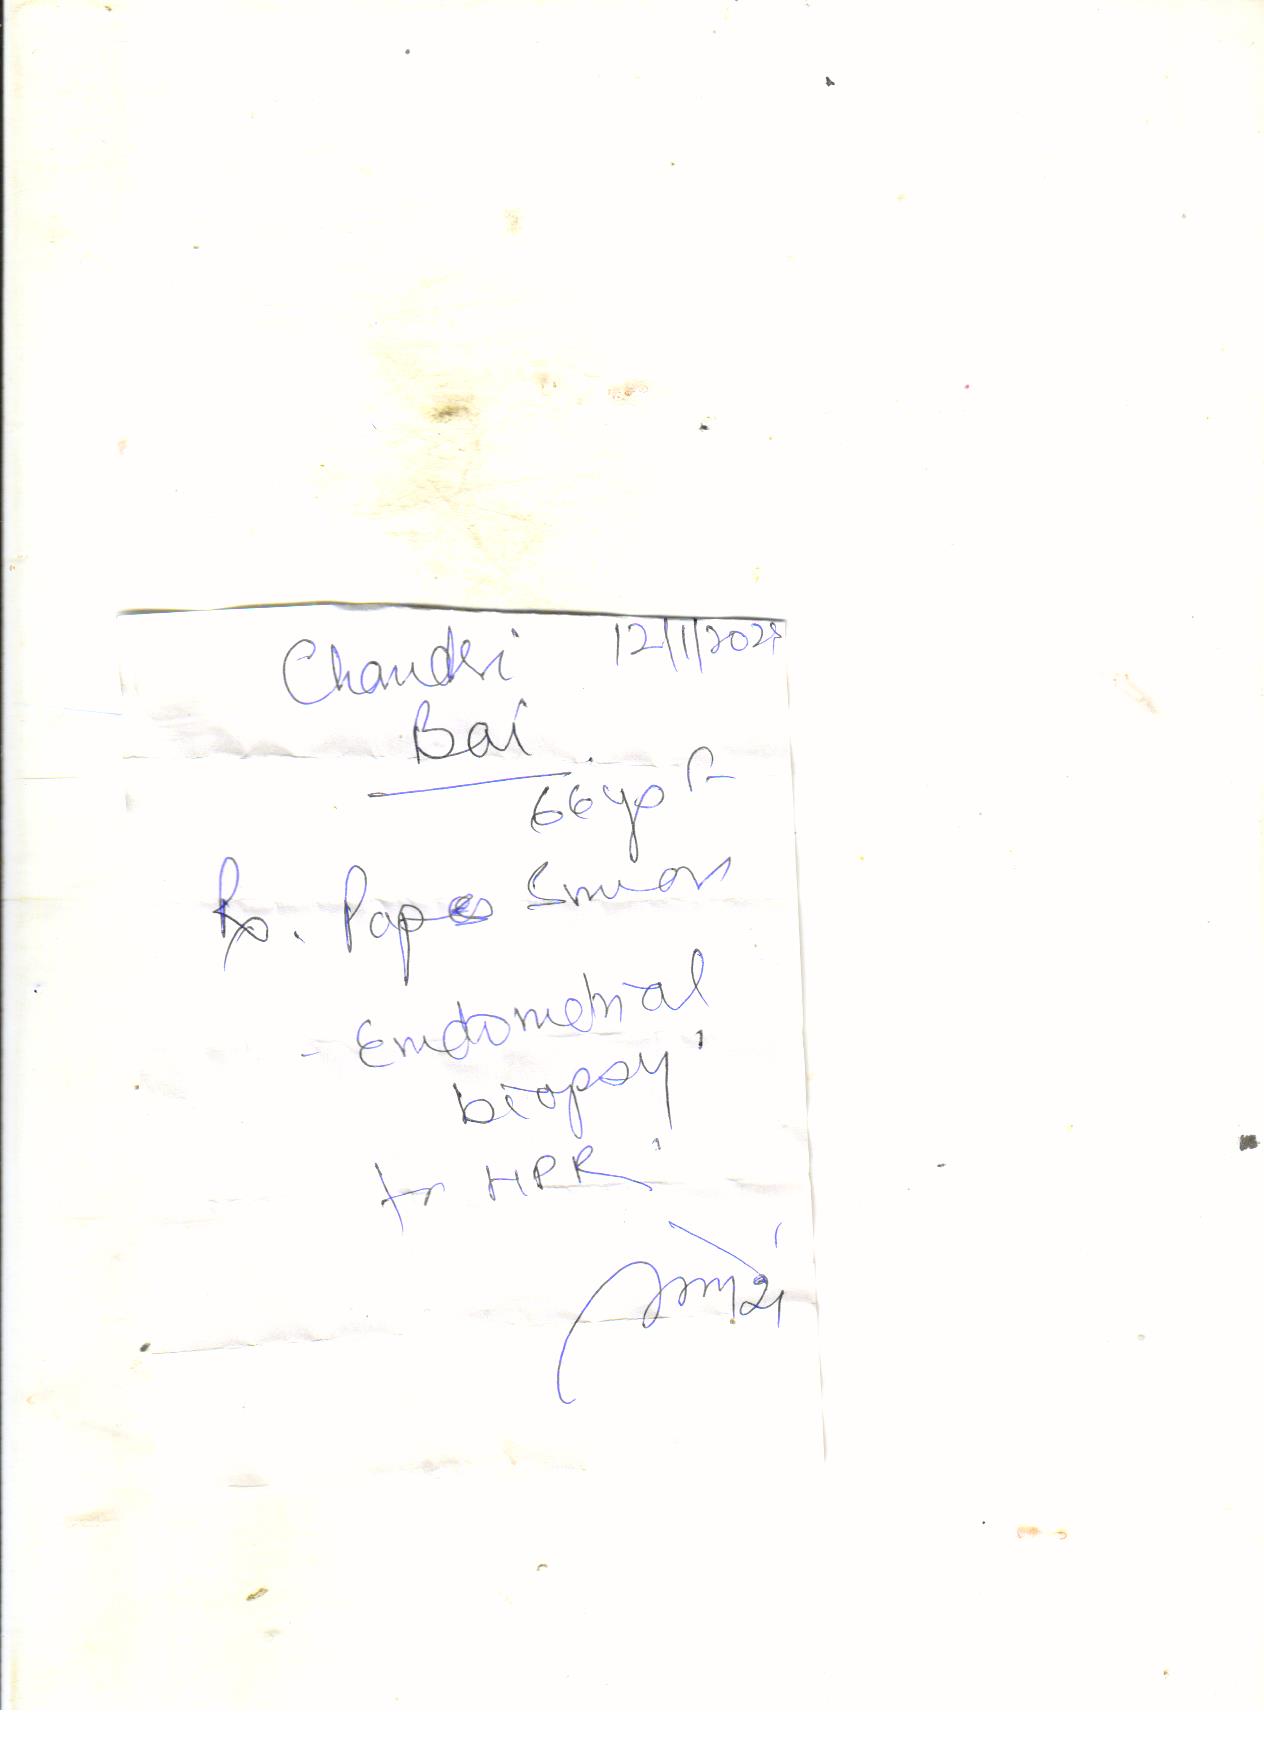 Chanderi 12/1/2028
Bai
66 yo F
Rx. Pap Smear
- Endometrial
biopsy
for HPR